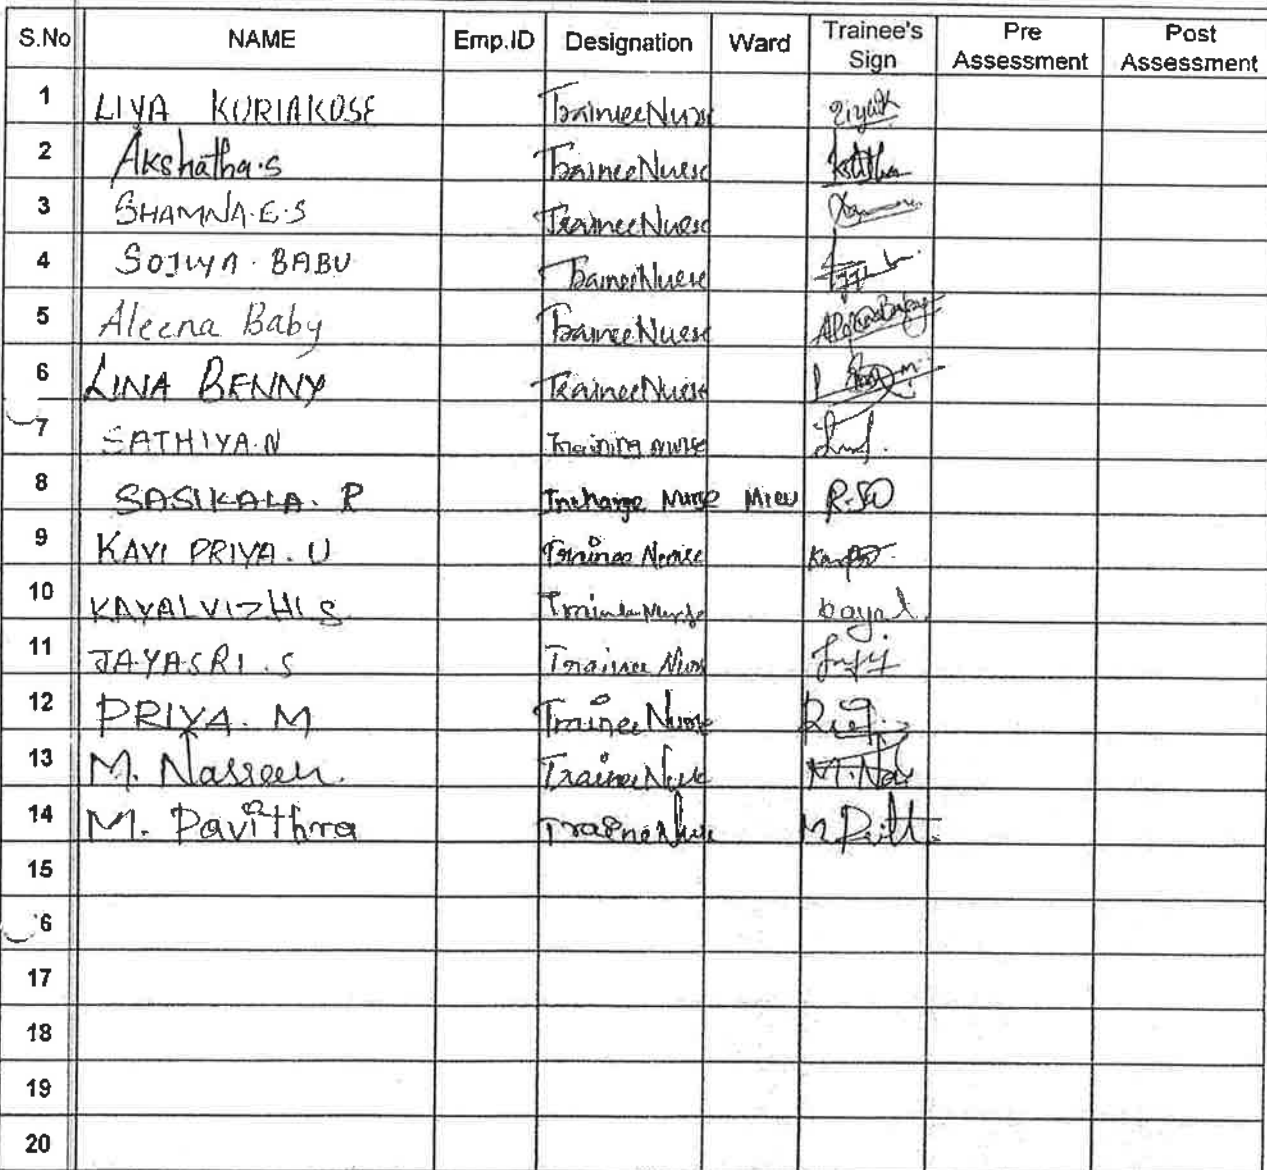 S.No NAME Emp.ID Designation Ward Trainee's Sign Pre Assessment Post Assessment
1 LIYA KURIAKOSE Trainee Nurse
2 Akshatha.S Trainee Nurse
3 SHAMNA.E.S Trainee Nurse
4 SOJIYA. BABU Trainee Nurse
5 Aleena Baby Trainee Nurse
6 LINA BENNY Trainee Nurse
7 SATHIYA.N Training nurse
8 SASIKALA. R Incharge Nurse MICU
9 KAVI PRIYA. U Trainee Nurse
10 KAYALVIZHI S Trainee Nurse kayal.
11 JAYASRI. S Trainee Nurse
12 PRIYA. M Trainee Nurse
13 M. Nasreen. Trainee Nurse M. Nas
14 M. Pavithra Traine Nurse
15
6
17
18
19
20